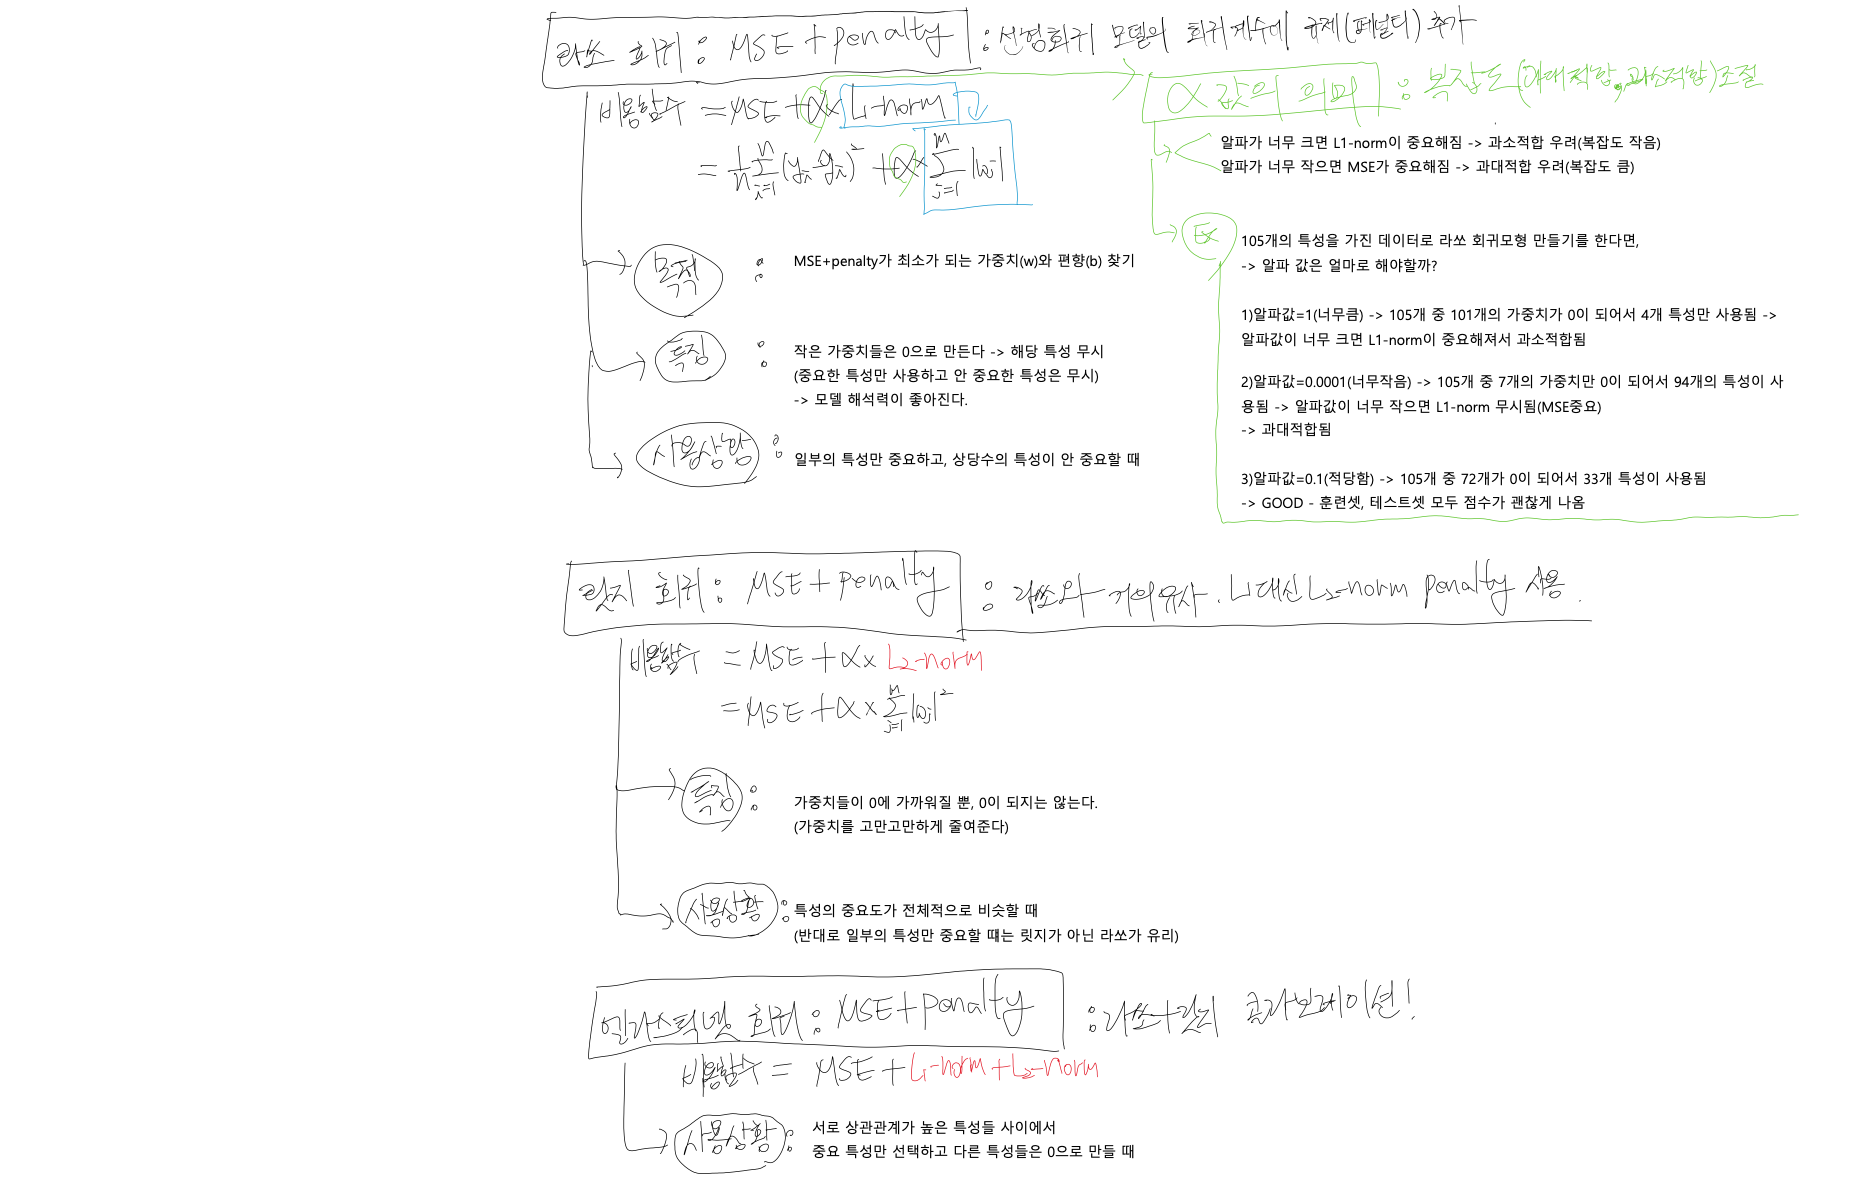 라쏘 회귀 : MSE + penalty : 선형회귀 모델의 회귀계수에 규제(페널티) 추가
비용함수 = MSE + α× L1-norm
= 1/n Σ(i=1, n) (yi - ŷi)² + α × Σ(j=1, m) |wj|
α 값의 의미 : 복잡도(과대적합, 과소적합)조절
알파가 너무 크면 L1-norm이 중요해짐 -> 과소적합 우려(복잡도 작음)
알파가 너무 작으면 MSE가 중요해짐 -> 과대적합 우려(복잡도 큼)
EX
105개의 특성을 가진 데이터로 라쏘 회귀모형 만들기를 한다면,
-> 알파 값은 얼마로 해야할까?
1)알파값=1(너무큼) -> 105개 중 101개의 가중치가 0이 되어서 4개 특성만 사용됨 ->
알파값이 너무 크면 L1-norm이 중요해져서 과소적합됨
2)알파값=0.0001(너무작음) -> 105개 중 7개의 가중치만 0이 되어서 94개의 특성이 사
용됨 -> 알파값이 너무 작으면 L1-norm 무시됨(MSE중요)
-> 과대적합됨
3)알파값=0.1(적당함) -> 105개 중 72개가 0이 되어서 33개 특성이 사용됨
-> GOOD - 훈련셋, 테스트셋 모두 점수가 괜찮게 나옴
목적 : MSE+penalty가 최소가 되는 가중치(w)와 편향(b) 찾기
특징 : 작은 가중치들은 0으로 만든다 -> 해당 특성 무시
(중요한 특성만 사용하고 안 중요한 특성은 무시)
-> 모델 해석력이 좋아진다.
사용상황 : 일부의 특성만 중요하고, 상당수의 특성이 안 중요할 때
릿지 회귀 : MSE + penalty : 라쏘와 거의유사. L1대신 L2-norm penalty 사용.
비용함수 = MSE + α× L2-norm
= MSE + α × Σ(j=1, m) |wj|²
특징 : 가중치들이 0에 가까워질 뿐, 0이 되지는 않는다.
(가중치를 고만고만하게 줄여준다)
사용상황 : 특성의 중요도가 전체적으로 비슷할 때
(반대로 일부의 특성만 중요할 떄는 릿지가 아닌 라쏘가 유리)
엘라스틱넷 회귀 : MSE+penalty : 라쏘+릿지 콜라보레이션!
비용함수 = MSE + L1-norm + L2-norm
사용상황 : 서로 상관관계가 높은 특성들 사이에서
중요 특성만 선택하고 다른 특성들은 0으로 만들 때